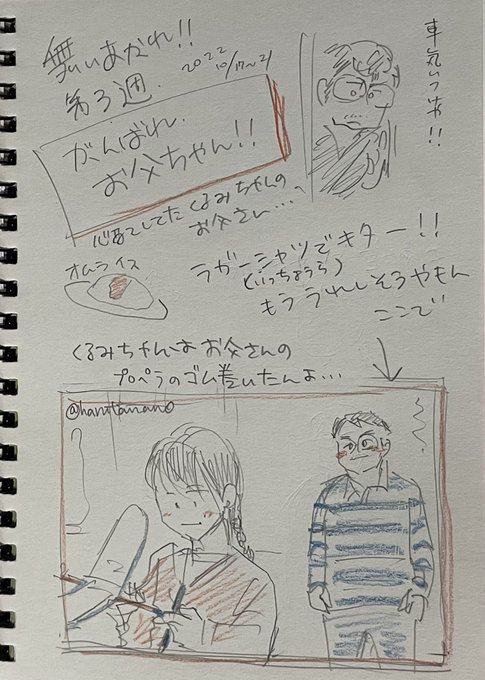 舞いあがれ!!
2022
10/17〜21
第3週.
がんばれ、
お父ちゃん!!
心配してた くるみちゃんの
お父さん…
オムライス
ラガーシャツでキター!!
(いっちょうら)
もううれしそうやもん
ここで
くるみちゃんは お父さんの
プロペラのゴム巻いたんよ…
@haruttanano